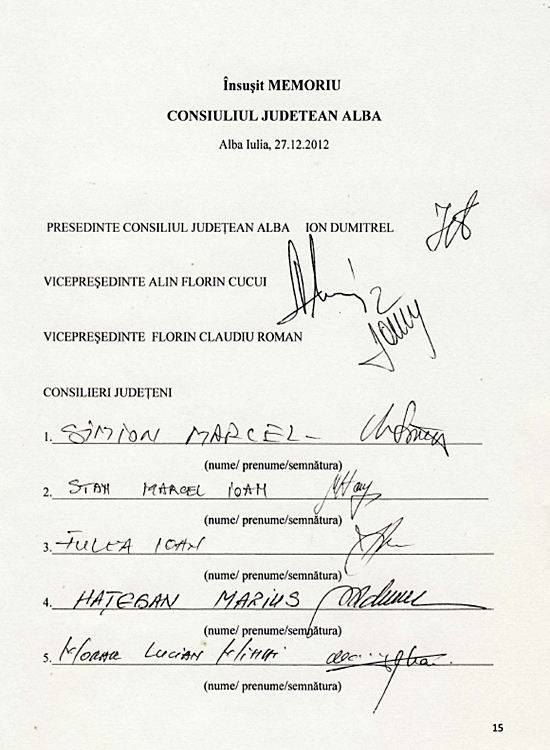 Însuşit MEMORIU
CONSIULIUL JUDETEAN ALBA
Alba Iulia, 27.12.2012
PRESEDINTE CONSILIUL JUDEŢEAN ALBA ION DUMITREL
VICEPREŞEDINTE ALIN FLORIN CUCUI
VICEPREŞEDINTE FLORIN CLAUDIU ROMAN
CONSILIERI JUDEŢENI
1. SIMION MARCEL
(nume/ prenume/semnătura)
2. STAN MARCEL IOAN
(nume/ prenume/semnătura)
3. TULEA IOAN
(nume/ prenume/semnătura)
4. HAŢEGAN MARIUS
(nume/ prenume/semnătura)
5. MORAR LUCIAN MIHAI
(nume/ prenume/semnătura)
15